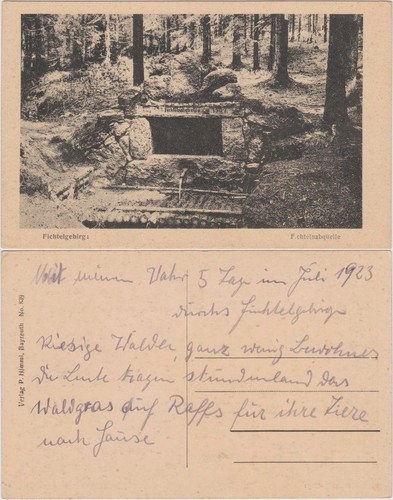 Fichtelgebirge
Fichtelnabquelle
Verlag P. Himml, Bayreuth No. 829
Mit meinem Vater 5 Tage im Juli 1923
durchs Fichtelgebirge
Riesige Wälder, ganz wenig bewohnt
die Leute tragen stundenland das
Waldgras auf Raffs für ihre Tiere
nach Hause